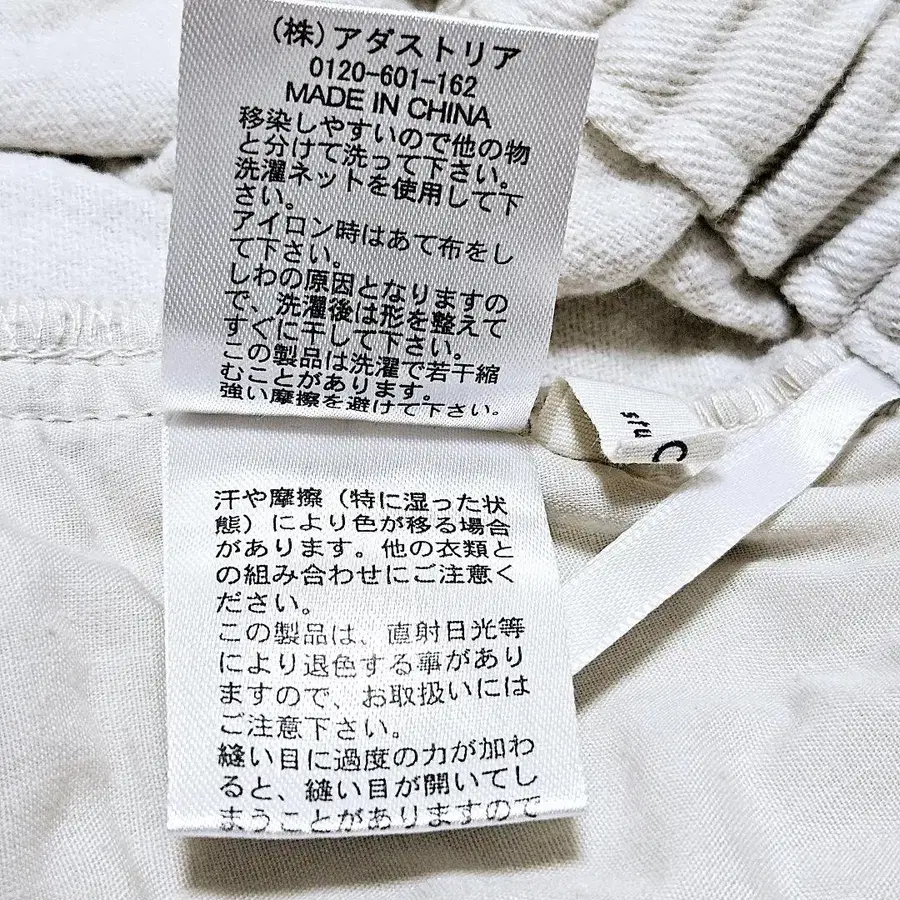 (株)アダストリア
0120-601-162
MADE IN CHINA
移染しやすいので他の物
と分けて洗って下さい。
洗濯ネットを使用して下
さい。
アイロン時はあて布をし
て下さい。
しわの原因となりますの
で、洗濯後は形を整えて
すぐに干して下さい。
この製品は洗濯で若干縮
むことがあります。
強い摩擦を避けて下さい。
汗や摩擦（特に湿った状
態）により色が移る場合
があります。他の衣類と
の組み合わせにご注意く
ださい。
この製品は、直射日光等
により退色する事があり
ますので、お取扱いには
ご注意下さい。
縫い目に過度の力が加わ
ると、縫い目が開いてし
まうことがありますので